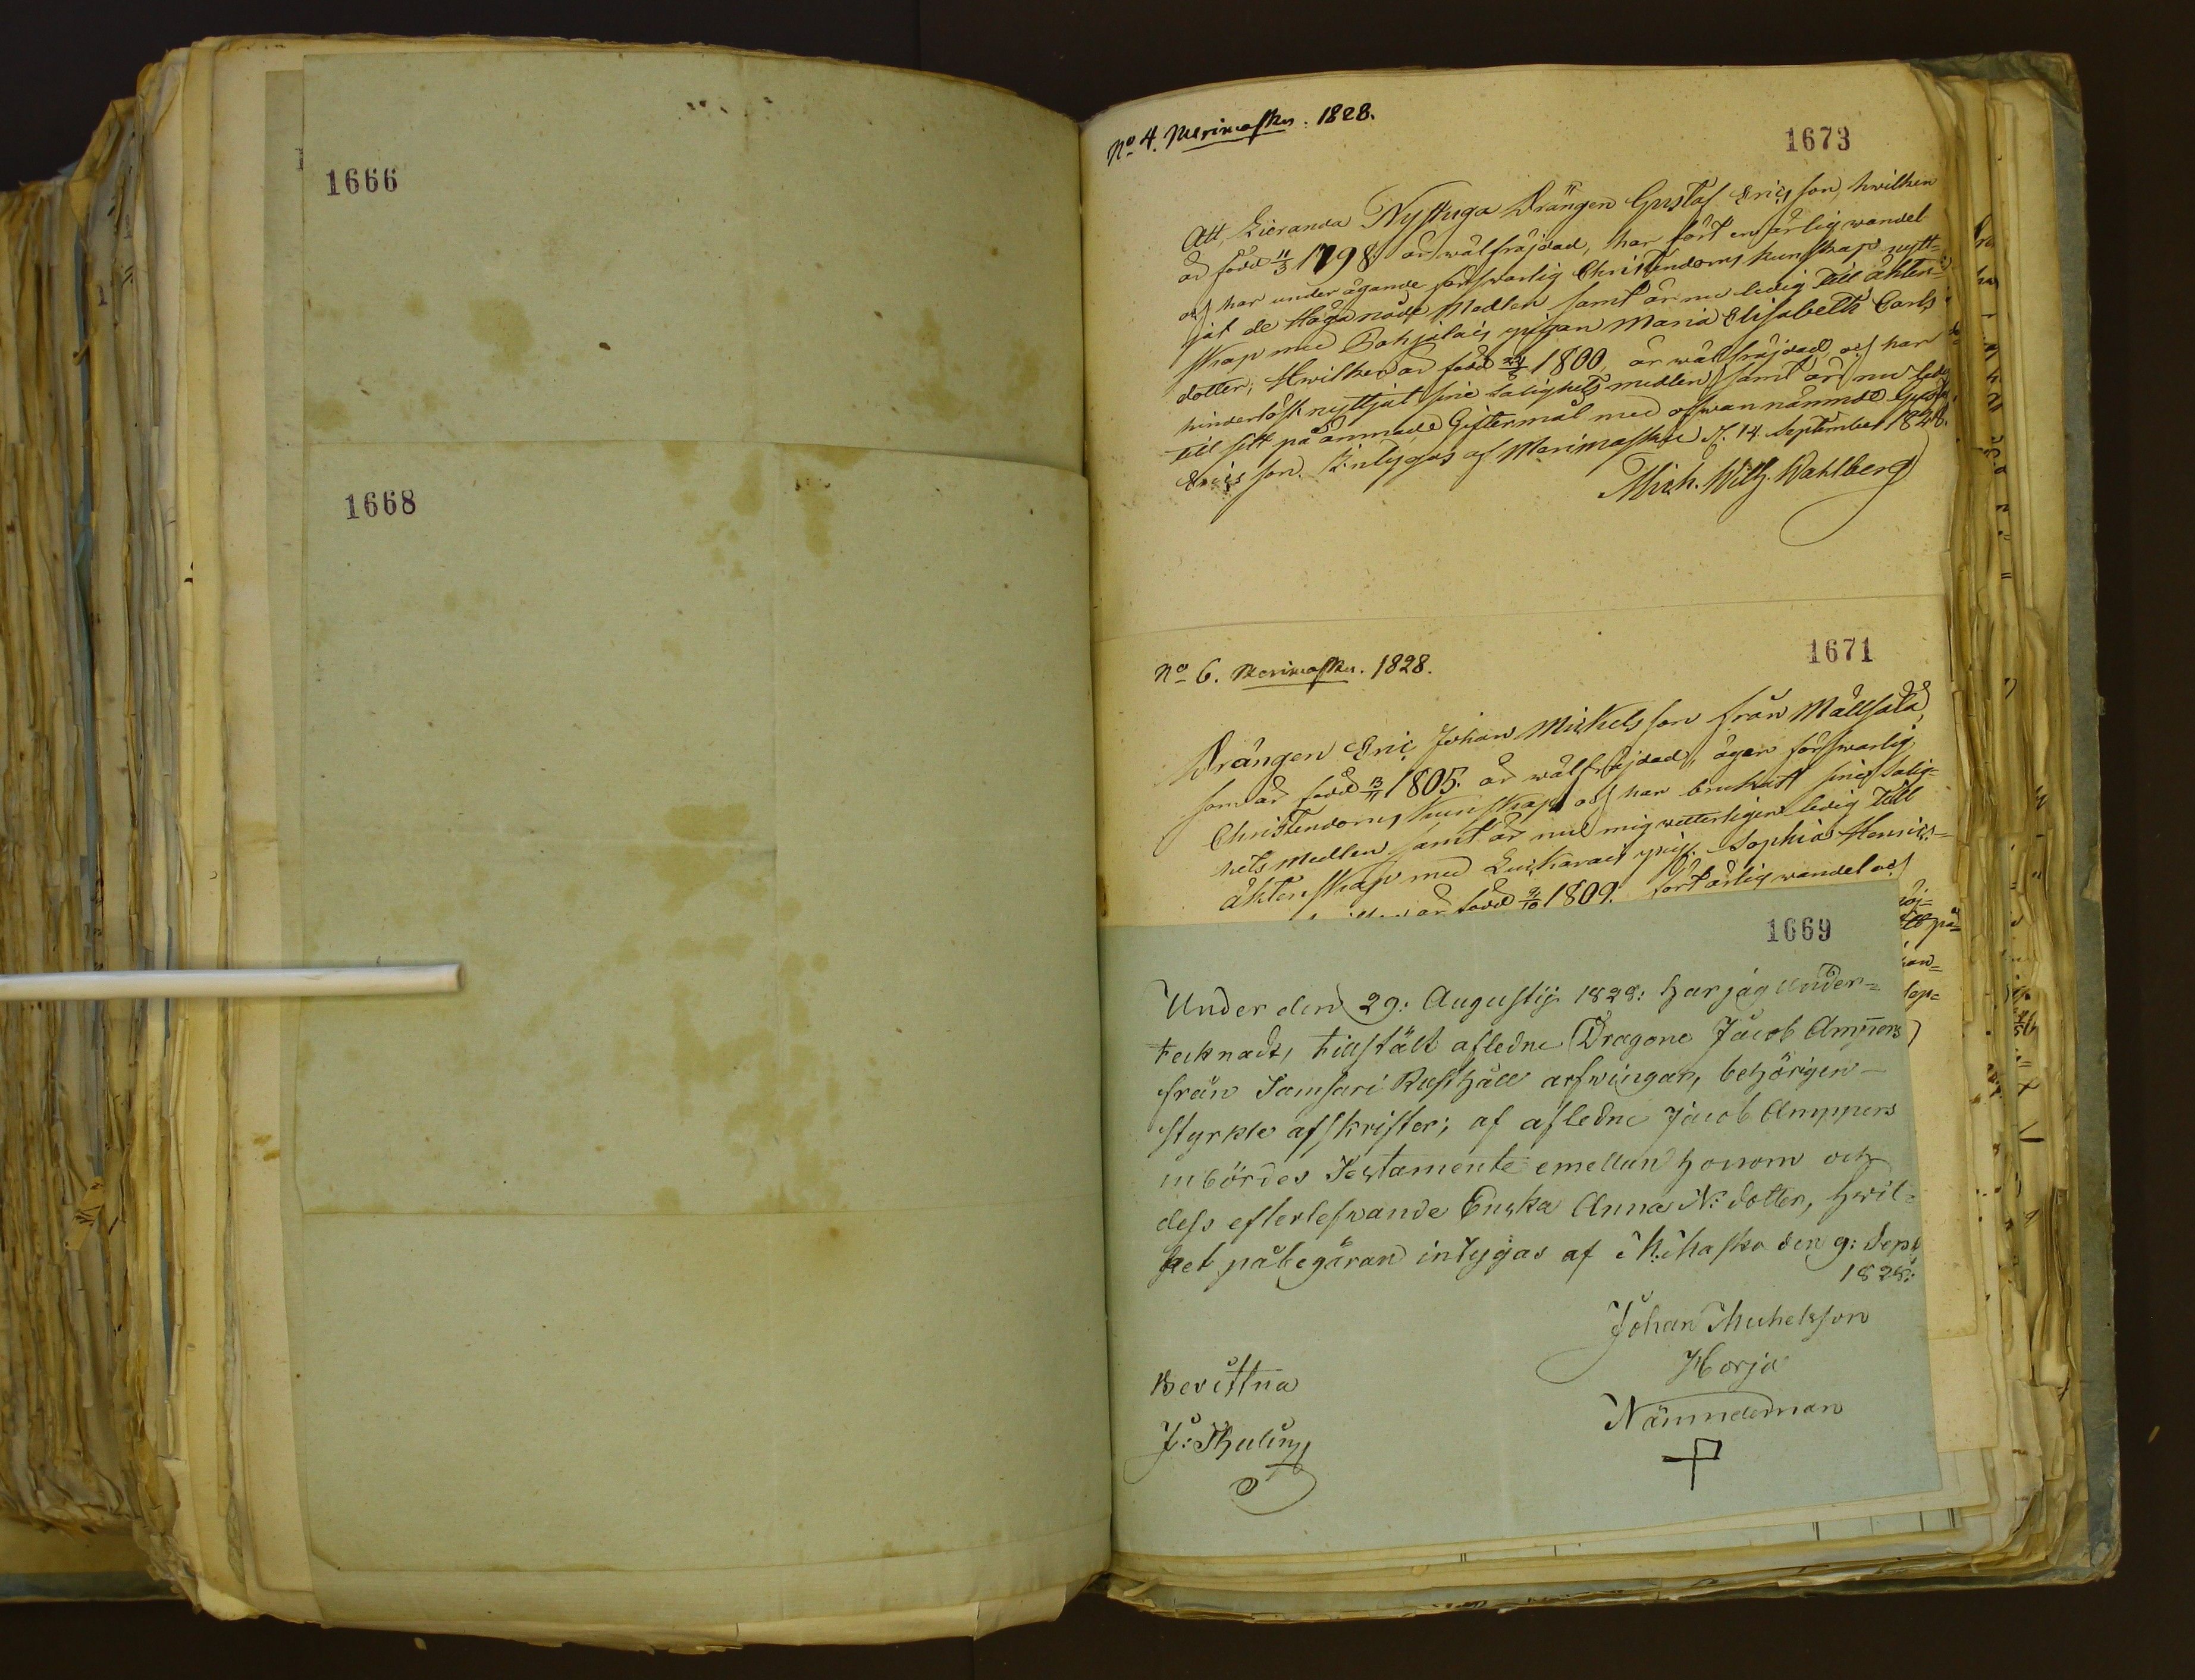 1666
1668
No 4. Merimasku. 1828.
1673
Att Nystuga Drängen Gustaf Ericsson, hwilken
är född 11/3 1798. är wälfräjdad, har fört en ärlig wandel
och har under ägande förswarlig Christendoms kunskap nytt=
jat de Höga nåde Medlen samt är nu ledig till äkten=
skap med pigan Maria Elisabeth Carls
dotter, Hwilken är född 1800, är wälfräjdad och har
hinderlöst nyttjat sine salighets medlen samt är nu ledig
till sitt påärnade Giftermål med ofwannämnde Gustaf
Ericsson. Intygas af Merimasku d. 14 September 1828.
Mich. Wilh. Wahlberg
No 6. Merimasku. 1828.
1671
Drängen Eric Johan Mickelsson från
som är född 13/11 1805. är wälfräjdad, äger förswarlig
Christendoms Kunskap och har brukatt sine Salig=
hets Medlen samt är nu mig wetterligen ledig till
äktenskap med pig. Sophia Henrics=
är född 9/10 1809. fört ärlig wandel och
1669
Under den 29: Augustij 1828: har jag under=
tecknadt, tillstält afledne Dragone Jacob Ampers
från Tamsari Rusthåll arfwingar, behörigen
styrkte afskrifter; af afledne Jacob Amppers
inbördes Testamente emellan honom och
dess efterlefwande Enska Anna N: dotter, hwil=
ket påbegäran intygas af Masku den 9: Sept
1828:
Johan Michelsson
Korja
Nämndeman
Bevittna
J: Thulin